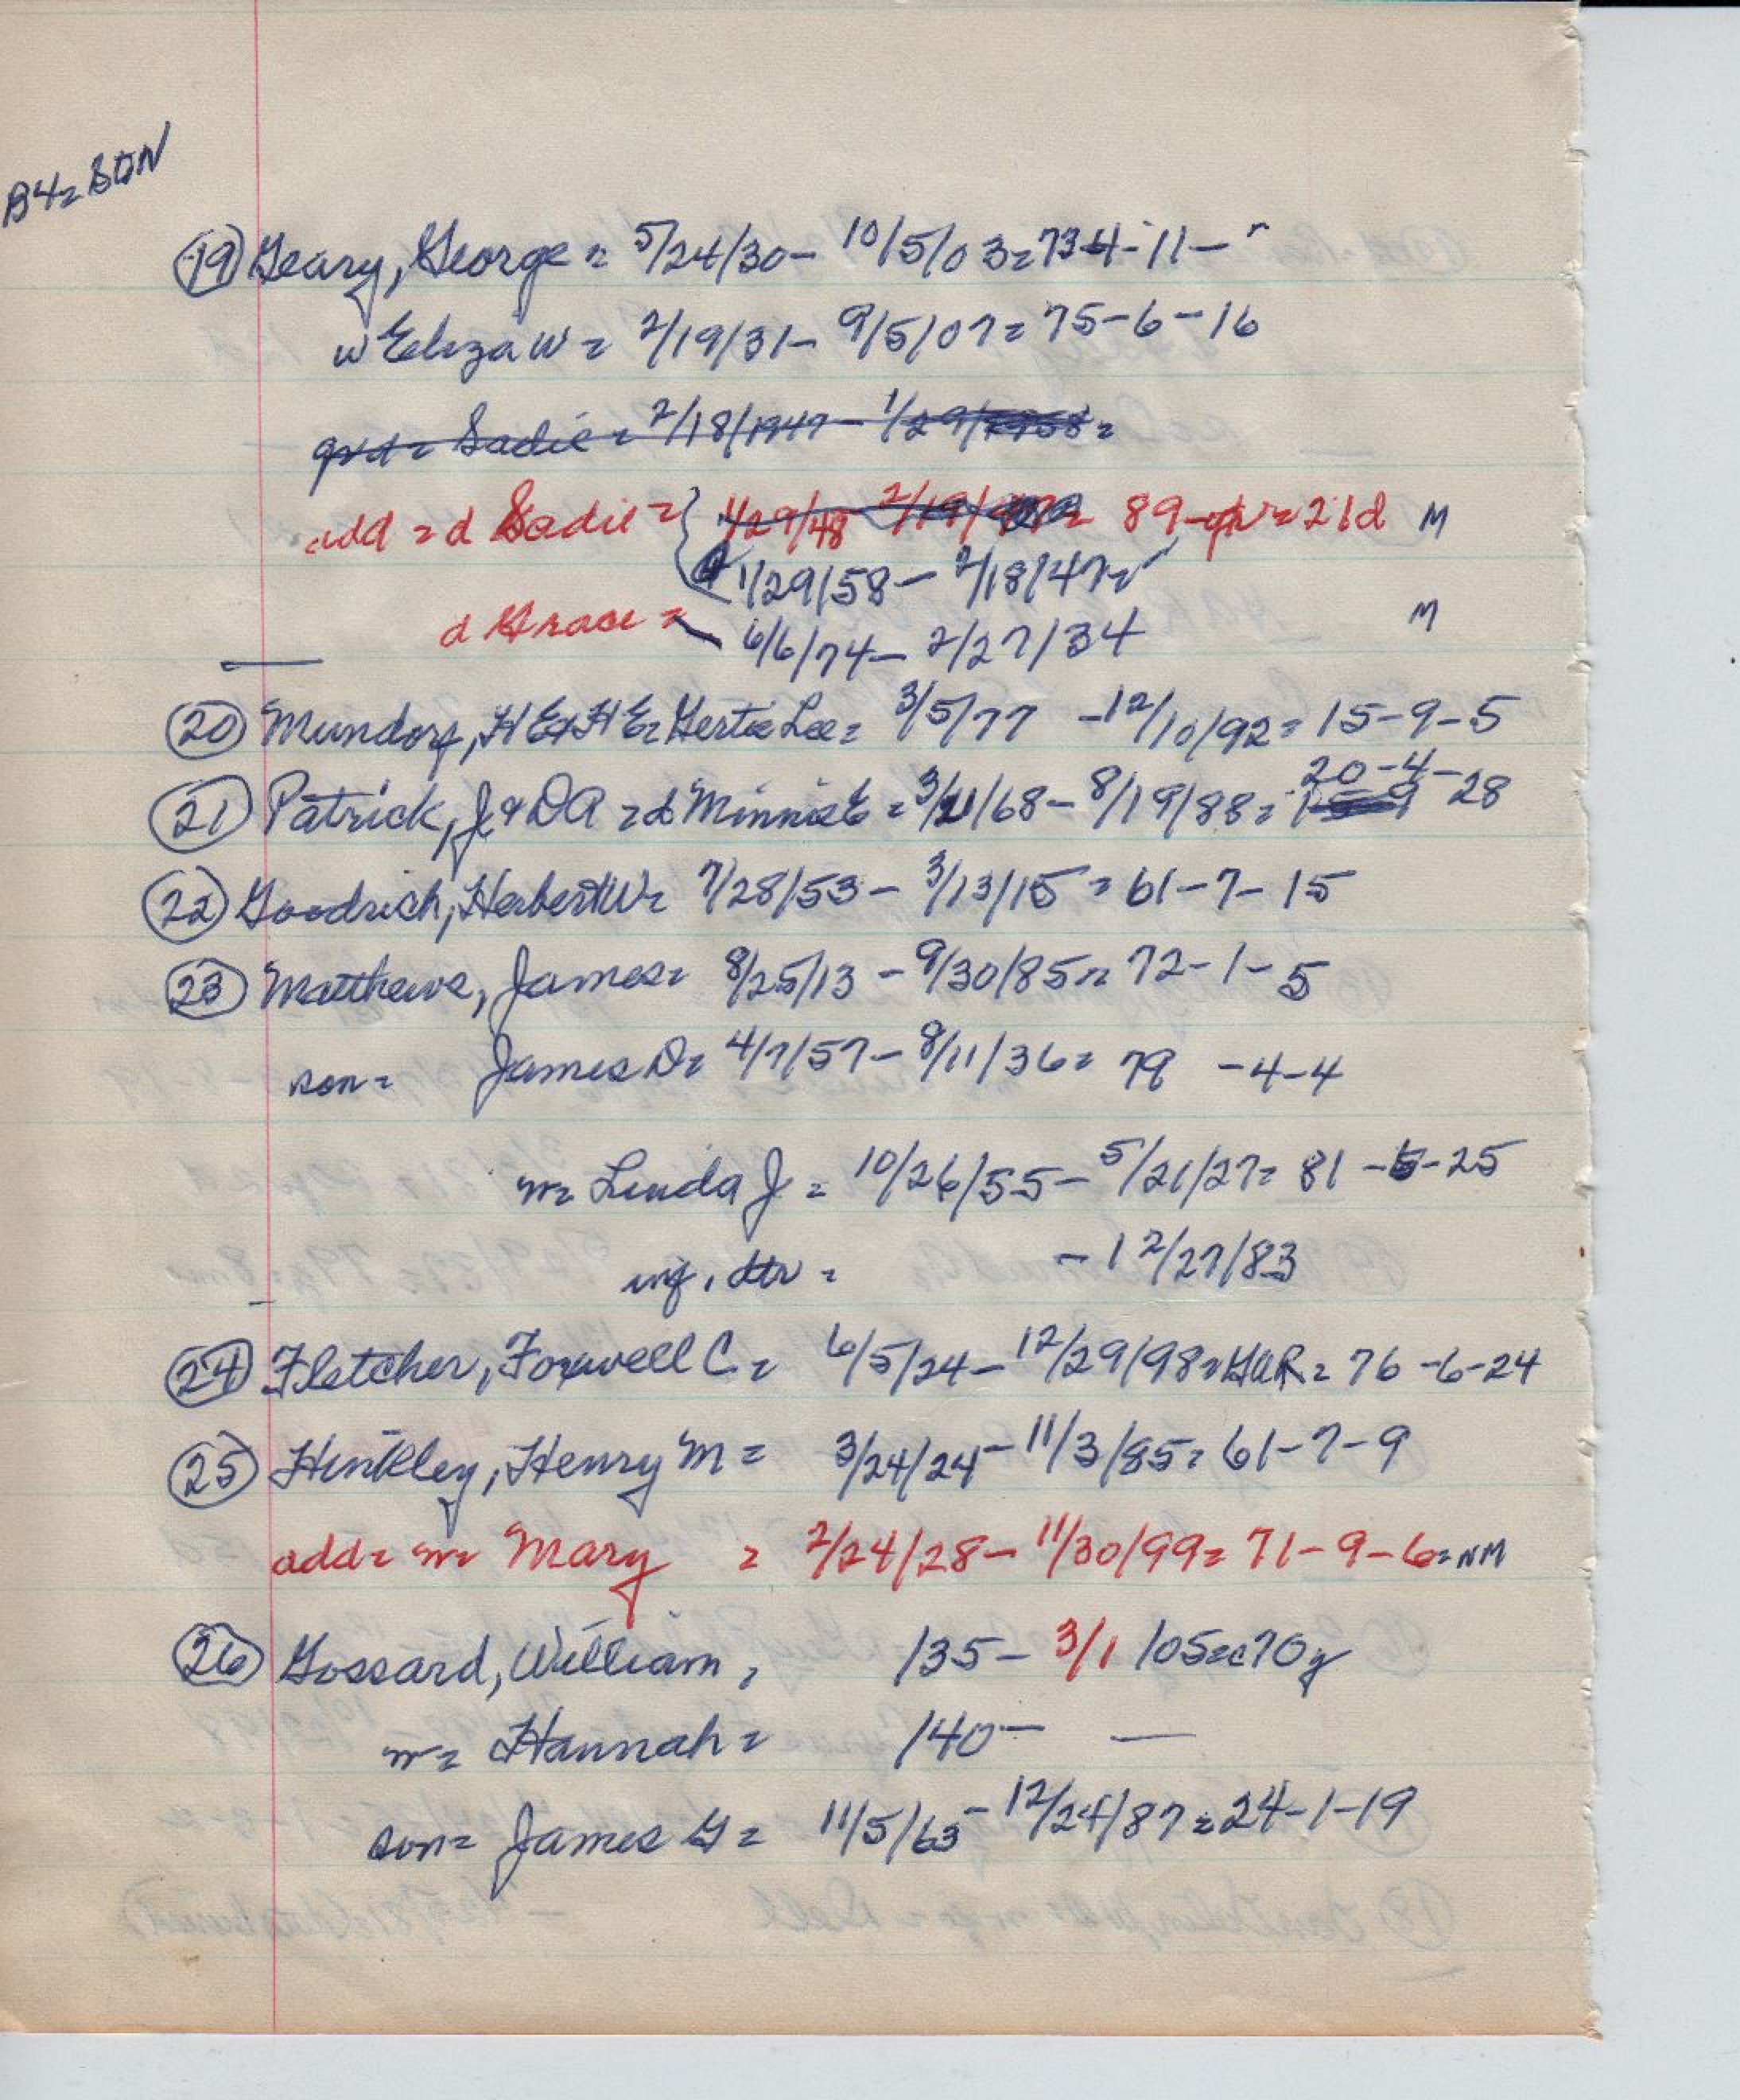 B4= BDN
(19) Geary, George = 5/24/30 - 10/5/03 = 73-4-11 - "
w Eliza W = 2/19/31 - 9/5/07 = 75-6-16
Sadie = 2/18/1947 - 1/29/1958 =
add = d Sadie = { 1/29/48 2/19/ 89- 21d M
1/29/58 - 2/18/47 = "
d Grace = 6/6/74 - 2/27/34 M
(20) Mundorf, H E & H E = Gertie Lee = 3/5/77 - 12/10/92 = 15-9-5
20-4-
(21) Patrick, J & D A = d Minnie E = 3/21/68 - 8/19/88 = 28
(22) Goodrich, Herbert W = 7/28/53 - 3/13/15 = 61-7-15
(23) Matthews, James = 8/25/13 - 9/30/85 = 72-1-5
son = James D = 4/7/57 - 8/11/36 = 79 -4-4
w = Linda J = 10/26/55 - 5/21/27 = 81 -6-25
inf. dtr = - 12/27/83
(24) Fletcher, Foxwell C = 6/5/24 - 12/29/98 = GAR = 76 -6-24
(25) Hinkley, Henry M = 3/24/24 - 11/3/85 = 61-7-9
add = w = Mary = 2/24/28 - 11/30/99 = 71-9-6 = NM
(26) Gossard, William, /35 - 3/1 /05 = c70y
w = Hannah = /40 - —
son = James G = 11/5/63 - 12/24/87 = 24-1-19